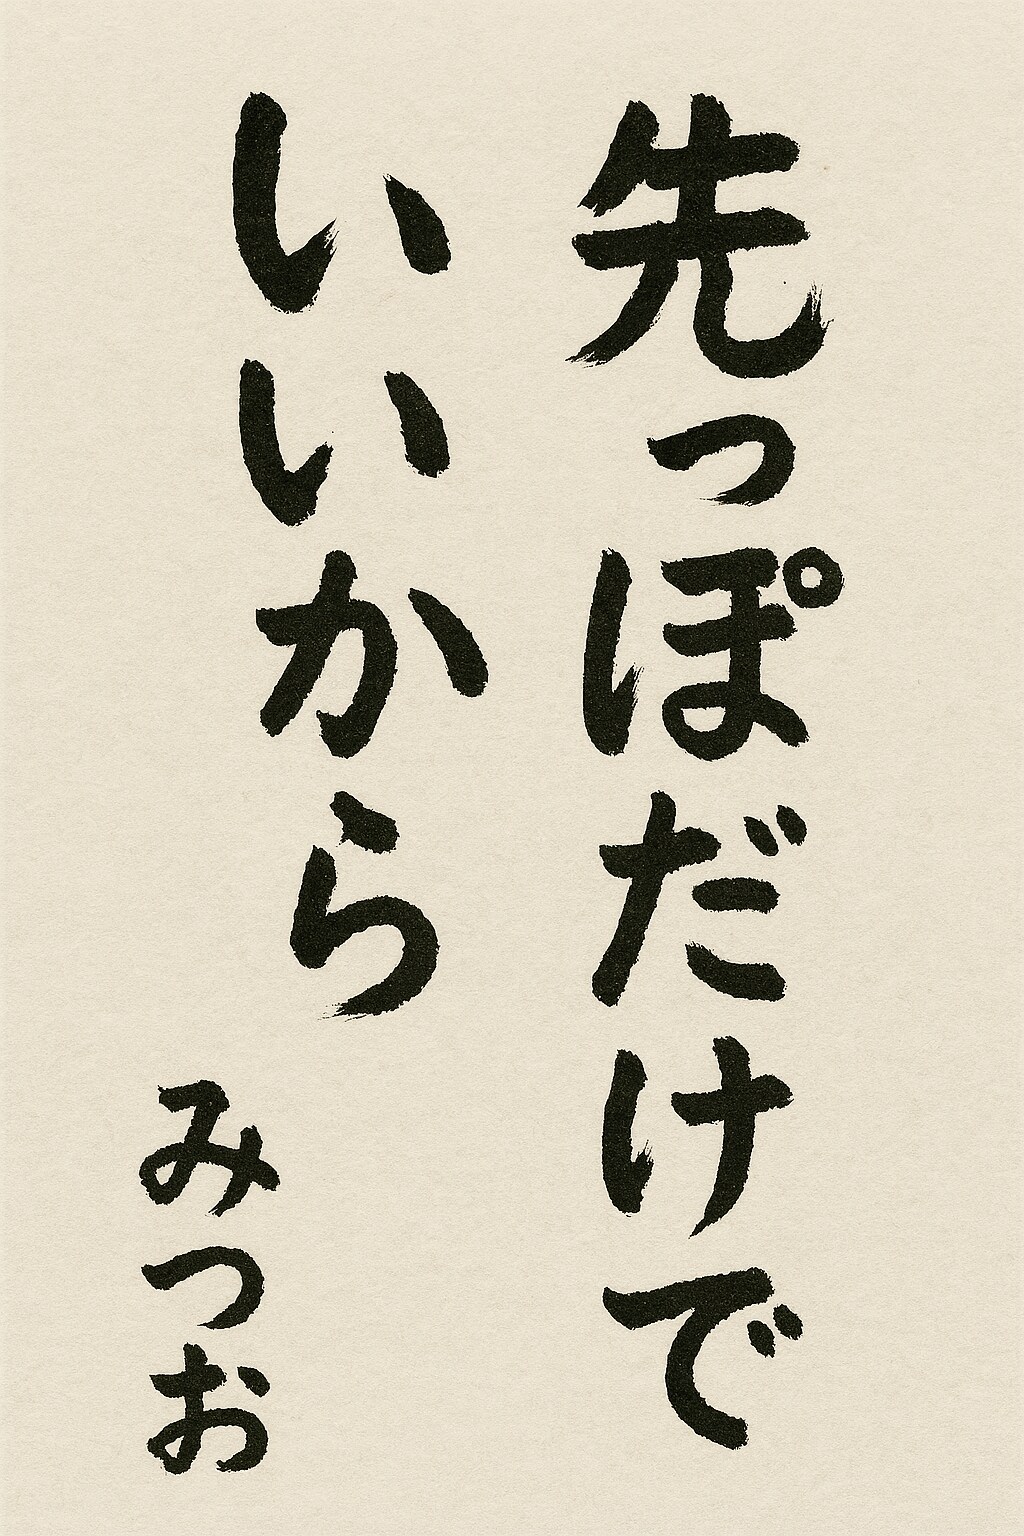 先っぽだけで
いいから
みつお